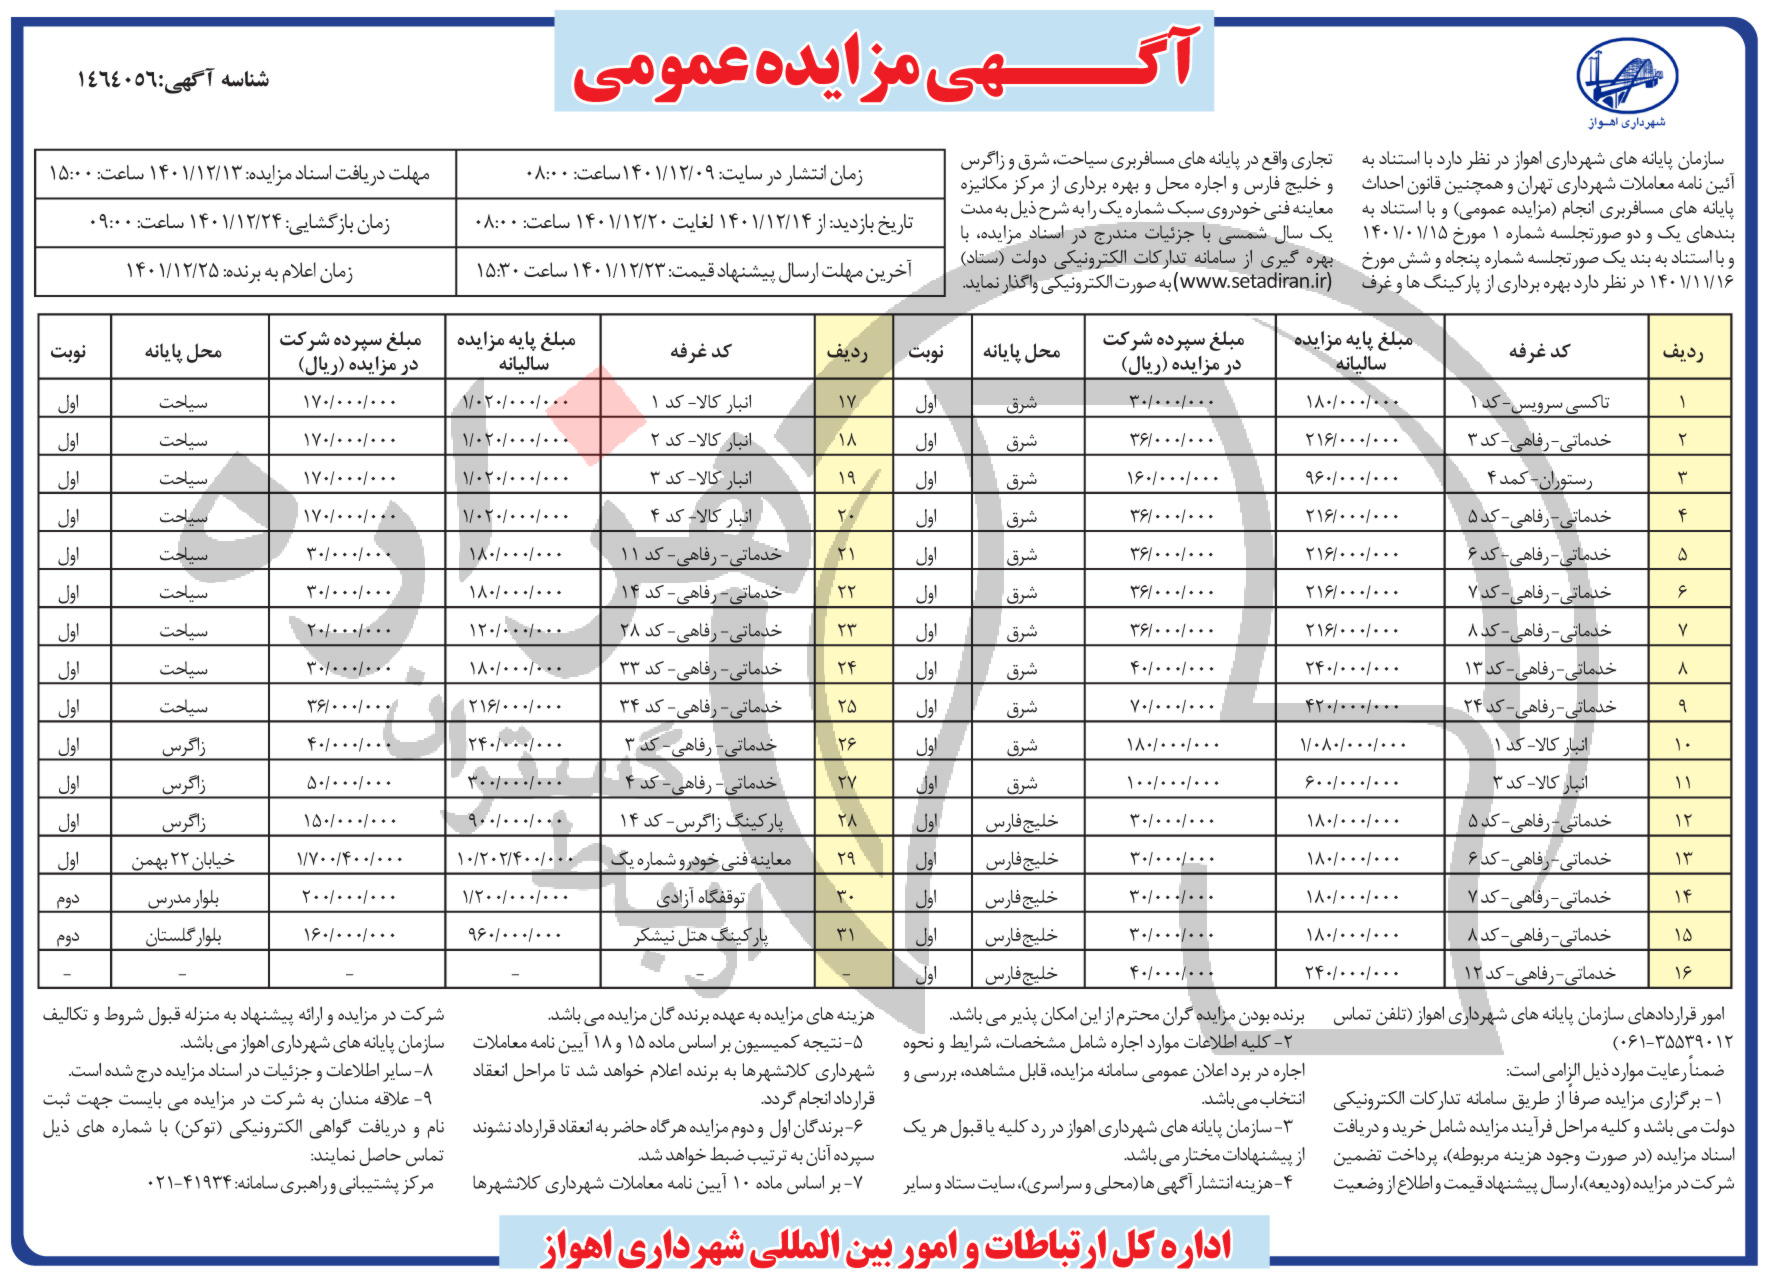 آگهی مزایده عمومی
شناسه آگهی:۱۴۶۴۰۵۶
شهرداری اهواز
سازمان پایانه های شهرداری اهواز در نظر دارد با استناد به
آئین نامه معاملات شهرداری تهران و همچنین قانون احداث
پایانه های مسافربری انجام (مزایده عمومی) و با استناد به
بندهای یک و دو صورتجلسه شماره ۱ مورخ ۱۴۰۱/۰۱/۱۵
و با استناد به بند یک صورتجلسه شماره پنجاه و شش مورخ
۱۴۰۱/۱۱/۱۶ در نظر دارد بهره برداری از پارکینگ ها و غرف
تجاری واقع در پایانه های مسافربری سیاحت، شرق و زاگرس
و خلیج فارس و اجاره محل و بهره برداری از مرکز مکانیزه
معاینه فنی خودروی سبک شماره یک را به شرح ذیل به مدت
یک سال شمسی با جزئیات مندرج در اسناد مزایده، با
بهره گیری از سامانه تدارکات الکترونیکی دولت (ستاد)
(www.setadiran.ir) به صورت الکترونیکی واگذار نماید.
زمان انتشار در سایت: ۱۴۰۱/۱۲/۰۹ساعت: ۰۸:۰۰ مهلت دریافت اسناد مزایده: ۱۴۰۱/۱۲/۱۳ ساعت: ۱۵:۰۰
تاریخ بازدید: از ۱۴۰۱/۱۲/۱۴ لغایت ۱۴۰۱/۱۲/۲۰ ساعت: ۰۸:۰۰ زمان بازگشایی: ۱۴۰۱/۱۲/۲۴ ساعت: ۰۹:۰۰
آخرین مهلت ارسال پیشنهاد قیمت: ۱۴۰۱/۱۲/۲۳ ساعت ۱۵:۳۰ زمان اعلام به برنده: ۱۴۰۱/۱۲/۲۵
ردیف کد غرفه مبلغ پایه مزایده سالیانه مبلغ سپرده شرکت در مزایده (ریال) محل پایانه نوبت ردیف کد غرفه مبلغ پایه مزایده سالیانه مبلغ سپرده شرکت در مزایده (ریال) محل پایانه نوبت
۱ تاکسی سرویس-کد ۱ ۱۸۰/۰۰۰/۰۰۰ ۳۰/۰۰۰/۰۰۰ شرق اول ۱۷ انبار کالا- کد ۱ ۱/۰۲۰/۰۰۰/۰۰۰ ۱۷۰/۰۰۰/۰۰۰ سیاحت اول
۲ خدماتی-رفاهی-کد ۳ ۲۱۶/۰۰۰/۰۰۰ ۳۶/۰۰۰/۰۰۰ شرق اول ۱۸ انبار کالا- کد ۲ ۱/۰۲۰/۰۰۰/۰۰۰ ۱۷۰/۰۰۰/۰۰۰ سیاحت اول
۳ رستوران-کمد ۴ ۹۶۰/۰۰۰/۰۰۰ ۱۶۰/۰۰۰/۰۰۰ شرق اول ۱۹ انبار کالا- کد ۳ ۱/۰۲۰/۰۰۰/۰۰۰ ۱۷۰/۰۰۰/۰۰۰ سیاحت اول
۴ خدماتی-رفاهی-کد ۵ ۲۱۶/۰۰۰/۰۰۰ ۳۶/۰۰۰/۰۰۰ شرق اول ۲۰ انبار کالا- کد ۴ ۱/۰۲۰/۰۰۰/۰۰۰ ۱۷۰/۰۰۰/۰۰۰ سیاحت اول
۵ خدماتی-رفاهی-کد ۶ ۲۱۶/۰۰۰/۰۰۰ ۳۶/۰۰۰/۰۰۰ شرق اول ۲۱ خدماتی- رفاهی- کد ۱۱ ۱۸۰/۰۰۰/۰۰۰ ۳۰/۰۰۰/۰۰۰ سیاحت اول
۶ خدماتی-رفاهی-کد ۷ ۲۱۶/۰۰۰/۰۰۰ ۳۶/۰۰۰/۰۰۰ شرق اول ۲۲ خدماتی- رفاهی- کد ۱۴ ۱۸۰/۰۰۰/۰۰۰ ۳۰/۰۰۰/۰۰۰ سیاحت اول
۷ خدماتی-رفاهی-کد ۸ ۲۱۶/۰۰۰/۰۰۰ ۳۶/۰۰۰/۰۰۰ شرق اول ۲۳ خدماتی- رفاهی- کد ۲۸ ۱۲۰/۰۰۰/۰۰۰ ۲۰/۰۰۰/۰۰۰ سیاحت اول
۸ خدماتی-رفاهی-کد ۱۳ ۲۴۰/۰۰۰/۰۰۰ ۴۰/۰۰۰/۰۰۰ شرق اول ۲۴ خدماتی- رفاهی- کد ۳۳ ۱۸۰/۰۰۰/۰۰۰ ۳۰/۰۰۰/۰۰۰ سیاحت اول
۹ خدماتی-رفاهی-کد ۲۴ ۴۲۰/۰۰۰/۰۰۰ ۷۰/۰۰۰/۰۰۰ شرق اول ۲۵ خدماتی- رفاهی- کد ۳۴ ۲۱۶/۰۰۰/۰۰۰ ۳۶/۰۰۰/۰۰۰ سیاحت اول
۱۰ انبار کالا- کد ۱ ۱/۰۸۰/۰۰۰/۰۰۰ ۱۸۰/۰۰۰/۰۰۰ شرق اول ۲۶ خدماتی- رفاهی- کد ۳ ۲۴۰/۰۰۰/۰۰۰ ۴۰/۰۰۰/۰۰۰ زاگرس اول
۱۱ انبار کالا- کد ۳ ۶۰۰/۰۰۰/۰۰۰ ۱۰۰/۰۰۰/۰۰۰ شرق اول ۲۷ خدماتی- رفاهی- کد ۴ ۳۰۰/۰۰۰/۰۰۰ ۵۰/۰۰۰/۰۰۰ زاگرس اول
۱۲ خدماتی-رفاهی-کد ۵ ۱۸۰/۰۰۰/۰۰۰ ۳۰/۰۰۰/۰۰۰ خلیج‌فارس اول ۲۸ پارکینگ زاگرس- کد ۱۴ ۹۰۰/۰۰۰/۰۰۰ ۱۵۰/۰۰۰/۰۰۰ زاگرس اول
۱۳ خدماتی-رفاهی-کد ۶ ۱۸۰/۰۰۰/۰۰۰ ۳۰/۰۰۰/۰۰۰ خلیج‌فارس اول ۲۹ معاینه فنی خودرو شماره یک ۱۰/۲۰۲/۴۰۰/۰۰۰ ۱/۷۰۰/۴۰۰/۰۰۰ خیابان ۲۲ بهمن اول
۱۴ خدماتی-رفاهی-کد ۷ ۱۸۰/۰۰۰/۰۰۰ ۳۰/۰۰۰/۰۰۰ خلیج‌فارس اول ۳۰ توقفگاه آزادی ۱/۲۰۰/۰۰۰/۰۰۰ ۲۰۰/۰۰۰/۰۰۰ بلوار مدرس دوم
۱۵ خدماتی-رفاهی-کد ۸ ۱۸۰/۰۰۰/۰۰۰ ۳۰/۰۰۰/۰۰۰ خلیج‌فارس اول ۳۱ پارکینگ هتل نیشکر ۹۶۰/۰۰۰/۰۰۰ ۱۶۰/۰۰۰/۰۰۰ بلوار گلستان دوم
۱۶ خدماتی-رفاهی-کد ۱۲ ۲۴۰/۰۰۰/۰۰۰ ۴۰/۰۰۰/۰۰۰ خلیج‌فارس اول - - - - - -
امور قراردادهای سازمان پایانه های شهرداری اهواز (تلفن تماس
۰۶۱-۳۵۵۳۹۰۱۲)
ضمناً رعایت موارد ذیل الزامی است:
۱- برگزاری مزایده صرفاً از طریق سامانه تدارکات الکترونیکی
دولت می باشد و کلیه مراحل فرآیند مزایده شامل خرید و دریافت
اسناد مزایده (در صورت وجود هزینه مربوطه)، پرداخت تضمین
شرکت در مزایده (ودیعه)، ارسال پیشنهاد قیمت و اطلاع از وضعیت
برنده بودن مزایده گران محترم از این امکان پذیر می باشد.
۲- کلیه اطلاعات موارد اجاره شامل مشخصات، شرایط و نحوه
اجاره در برد اعلان عمومی سامانه مزایده، قابل مشاهده، بررسی و
انتخاب می باشد.
۳-سازمان پایانه های شهرداری اهواز در رد کلیه یا قبول هر یک
از پیشنهادات مختار می باشد.
۴-هزینه انتشار آگهی ها (محلی و سراسری)، سایت ستاد و سایر
هزینه های مزایده به عهده برنده گان مزایده می باشد.
۵-نتیجه کمیسیون بر اساس ماده ۱۵ و ۱۸ آیین نامه معاملات
شهرداری کلانشهرها به برنده اعلام خواهد شد تا مراحل انعقاد
قرارداد انجام گردد.
۶-برندگان اول و دوم مزایده هرگاه حاضر به انعقاد قرارداد نشوند
سپرده آنان به ترتیب ضبط خواهد شد.
۷- بر اساس ماده ۱۰ آیین نامه معاملات شهرداری کلانشهرها
شرکت در مزایده و ارائه پیشنهاد به منزله قبول شروط و تکالیف
سازمان پایانه های شهرداری اهواز می باشد.
۸- سایر اطلاعات و جزئیات در اسناد مزایده درج شده است.
۹- علاقه مندان به شرکت در مزایده می بایست جهت ثبت
نام و دریافت گواهی الکترونیکی (توکن) با شماره های ذیل
تماس حاصل نمایند:
مرکز پشتیبانی و راهبری سامانه: ۴۱۹۳۴-۰۲۱
اداره کل ارتباطات و امور بین المللی شهرداری اهواز
هزاره
گستران
ارتباط